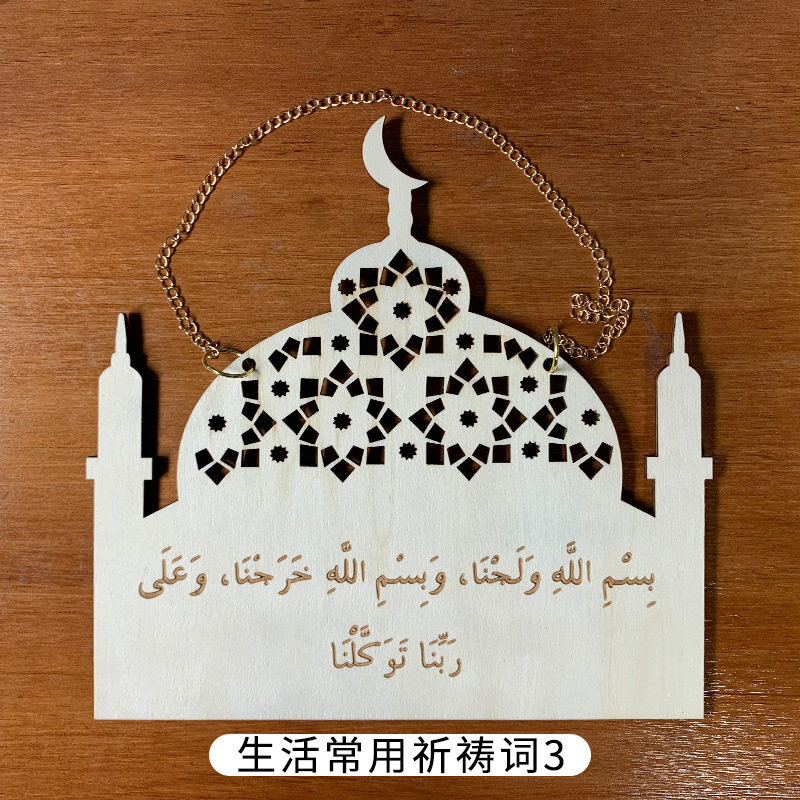 بِسْمِ اللَّهِ وَلَجْنَا، وَبِسْمِ اللَّهِ خَرَجْنَا، وَعَلَى
رَبِّنَا تَوَكَّلْنَا
生活常用祈祷词3